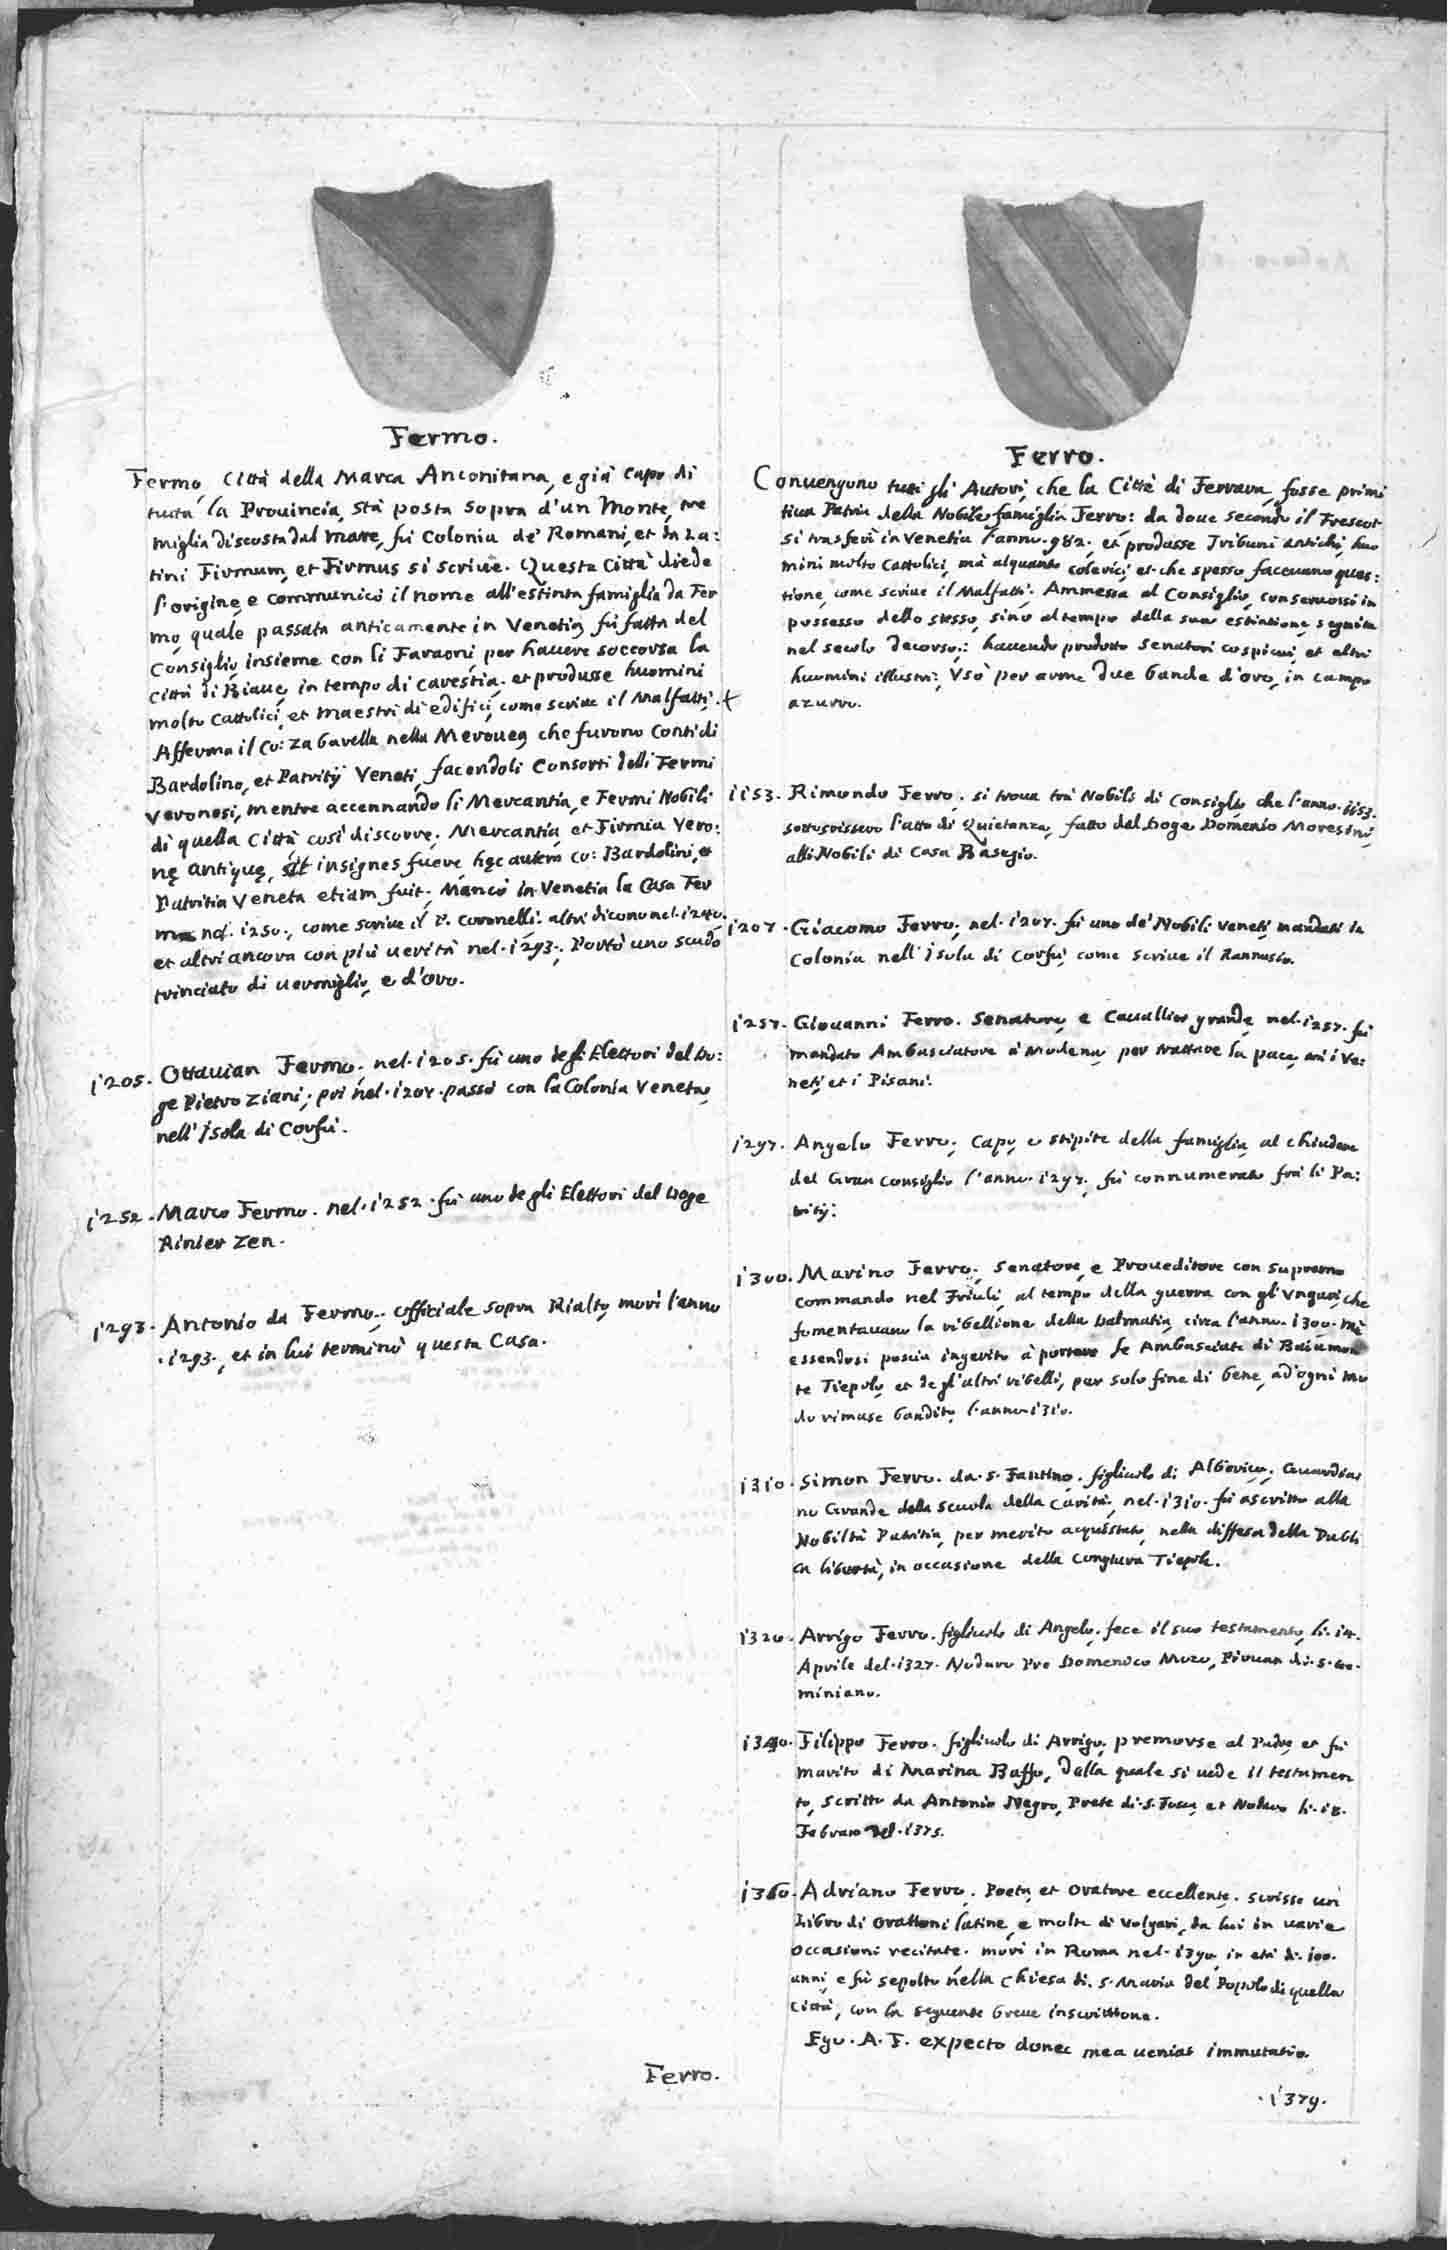 Fermo.
Fermo, Città della Marca Anconitana, e già Capo di
tutta la Prouincia, stà posta sopra d'un Monte, tre
miglia discosta dal mare, fù Colonia de' Romani, et in La:
tini Firmum, et Firmus si scriue. Questa Città diede
l'origine, e communicò il nome all'estinta famiglia da Fer
mo, quale passata anticamente in Venetia, fù fatta del
Consiglio, insieme con li Faraoni, per hauere soccorsa la
Città di Biaue, in tempo di carestia. et produsse huomini
molto Cattolici, et Maestri di edifici, come scriue il Malfatti. +
Afferma il Co: Zabarella nella Merouea, che furono Conti di
Bardolino, et Patritij Veneti, facendoli Consorti delli Fermi
Veronesi, mentre accennando li Mercantia, e Fermi Nobili
di quella Città così discorre. Mercantia, et Firmia Vero:
nę antiquę, insignes fuere hęc autem Co: Bardolini, et
Patritia Veneta etiam fuit. Mancò in Venetia la Casa Fer
nel. i250., come scriue il P. Coronelli. altri dicono nel. i240.
et altri ancora con più uerità nel. i293. Portò uno scudo
trinciato di uermiglio, e d'oro.
i205. Ottauian Fermo, nel. i205. fù uno degli Elettori del Do:
ge Pietro Ziani, poi nel. i207. passò con la Colonia Veneta,
nell'Isola di Corfù.
i252. Marco Fermo. nel. i252. fù uno degli Elettori del Doge
Rinier Zen.
i293. Antonio da Fermo, officiale sopra Rialto, morì l'anno
.i293., et in lui terminò questa Casa.
Ferro.
Ferro.
Conuengono tutti gli Autori, che la Città di Ferrara, fosse primi
tiua Patria della Nobile famiglia Ferro: da doue secondo il Frescot
si trasferì in Venetia l'anno. 982. et produsse Tribuni antichi, huo
mini molto Cattolici, mà alquanto colerici, et che spesso faceuano ques:
tione, come scriue il Malfatti. Ammessa al Consiglio, conseruossi in
possesso dello stesso, sino al tempo della sua estintione, seguita
nel secolo decorso: hauendo prodotto Senatori cospicui, et altri
huomini illustri; Vsò per arme due bande d'oro, in campo
azurro.
ii53. Rimondo Ferro. si troua trà Nobili di Consiglio che l'anno. ii53.
sottoscrissero l'atto di Quietanza, fatto dal Doge Domenico Moresini,
alli Nobili di Casa Basegio.
i207. Giacomo Ferro, nel. i207. fù uno de' Nobili Veneti, mandati in
Colonia nell'Isola di Corfù, come scriue il Rannusio.
i257. Giouanni Ferro. Senatore, e Cauallier grande, nel. i257. fù
mandato Ambasciatore à Modena, per trattare la pace, trà i Ve:
neti, et i Pisani.
i297. Angelo Ferro, Capo, e stipite della famiglia, al chiudere
del Gran Consiglio l'anno. i297. fù connumerato frà li Pa:
tritij.
i300. Marino Ferro, Senatore, e Proueditore con supremo
commando nel Friuli, al tempo della guerra con gl'Vngari, che
fomentauano la ribellione della Dalmatia, circa l'anno. i300. Mà
essendosi poscia ingerito à portare le Ambasciate di Baiamon
te Tiepolo, et degl'altri ribelli, per solo fine di bene, ad'ogni mo
do rimase bandito, l'anno. i3i0.
i3i0. Simon Ferro. da. S. Fantino. figliuolo di Alberico. Guardian
no Grande della Scuola della Carità, nel. i3i0. fù ascritto alla
Nobiltà Patritia, per merito acquistato, nella diffesa della Publi
ca libertà, in occasione della Congiura Tiepola.
i320. Arrigo Ferro. figliuolo di Angelo. fece il suo testamento, li. i4.
Aprile del. i327. Nodaro Pre Domenico Mozo, Piouan di. S. Ge
miniano.
i340. Filippo Ferro. figliuolo di Arrigo, premorse al Padre, et fù
marito di Marina Baffo, della quale si uede il testamen
to, scritto da Antonio Negro, Prete di. S. Fosca, et Nodaro li. i8.
Febraro del. i375.
i360. Adriano Ferro. Poeta, et Oratore eccellente. scrisse un
Libro di Orationi latine, e molte di Volgari, da lui in uarie
occasioni recitate. morì in Roma nel. i390. in età di. i00.
anni, e fù sepolto nella Chiesa di. S. Maria del Popolo di quella
Città, con la seguente breue inscrittione.
Ego. A. F. expecto donec mea ueniat immutatio.
.i379.